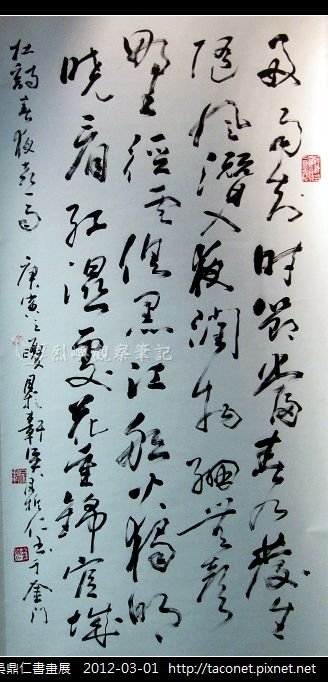 好雨知時節當春乃發生
隨風潛入夜潤物細無聲
野徑雲俱黑江船火獨明
曉看紅濕處花重錦官城
杜詩春夜喜雨 庚寅之夏 軒 吳鼎仁書于金門
烈嶼觀察筆記
吳鼎仁書畫展 2012-03-01 http://taconet.pixnet.net